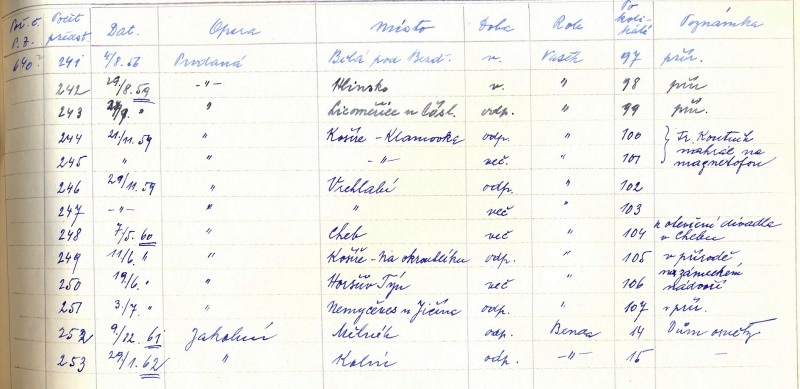 Poř. č. P. Z. Počet předst. Dat. Opera Místo Doba Role Po koli- káté Poznámka
640? 241 4/8. 56 Prodaná Bělá pod Bezd. v. Vašek 97 přír.
242 29/8. 59 -"- Hlinsko v. " 98 přír
243 27/9. " " Licoměřice u Čásl. odp. " 99 přír.
244 21/11. 59 " Košíře - Klamovka odp. " 100 } Fr. Koutník
245 " " -"- več. " 101 nahrál na magnetofon
246 29/11. 59 " Vrchlabí odp. " 102
247 -"- " " več " 103
248 7/5. 60 " Cheb več " 104 k otevření divadla v Chebu
249 11/6. " " Košíře - Na okrouhlíku odp. " 105 v přírodě
250 19/6. " " Horšův Týn več " 106 na zámeckém nádvoří
251 3./7. " " Nemyčeves u Jičína odp. " 107 v přír.
252 9./12. 61 Jakobín Mělník odp. Benda 14 Dům osvěty
253 29/1. 62 " Kolín odp. -"- 15 -